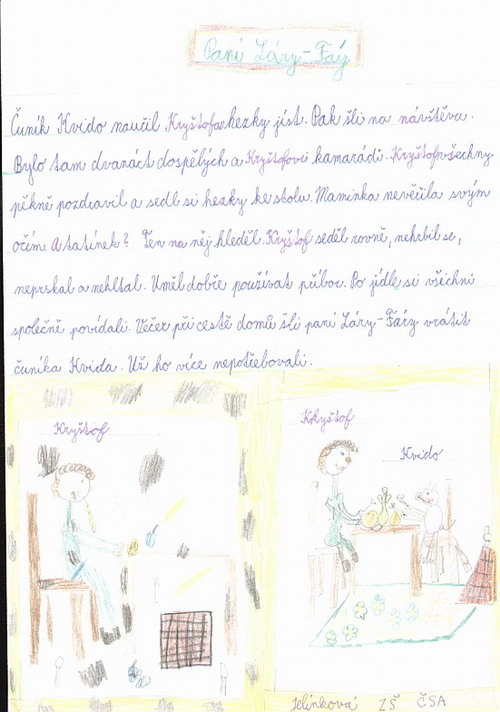 Paní Láry-Fáry
Čuník Kvido naučil Kryštofa hezky jíst. Pak šli na návštěvu.
Bylo tam dvanáct dospělých a Kryštofovi kamarádi. Kryštof všechny
pěkně pozdravil a sedl si hezky ke stolu. Maminka nevěřila svým
očím a tatínek? Ten na něj hleděl. Kryštof seděl rovně, nehrbil se,
neprskal a nehltal. Uměl dobře používat příbor. Po jídle si všichni
společně povídali. Večer při cestě domů šli paní Láry-Fáry vrátit
čuníka Kvida. Už ho více nepotřebovali.
Kryštof
Kryštof
Kvido
Jelínková ZŠ ČSA